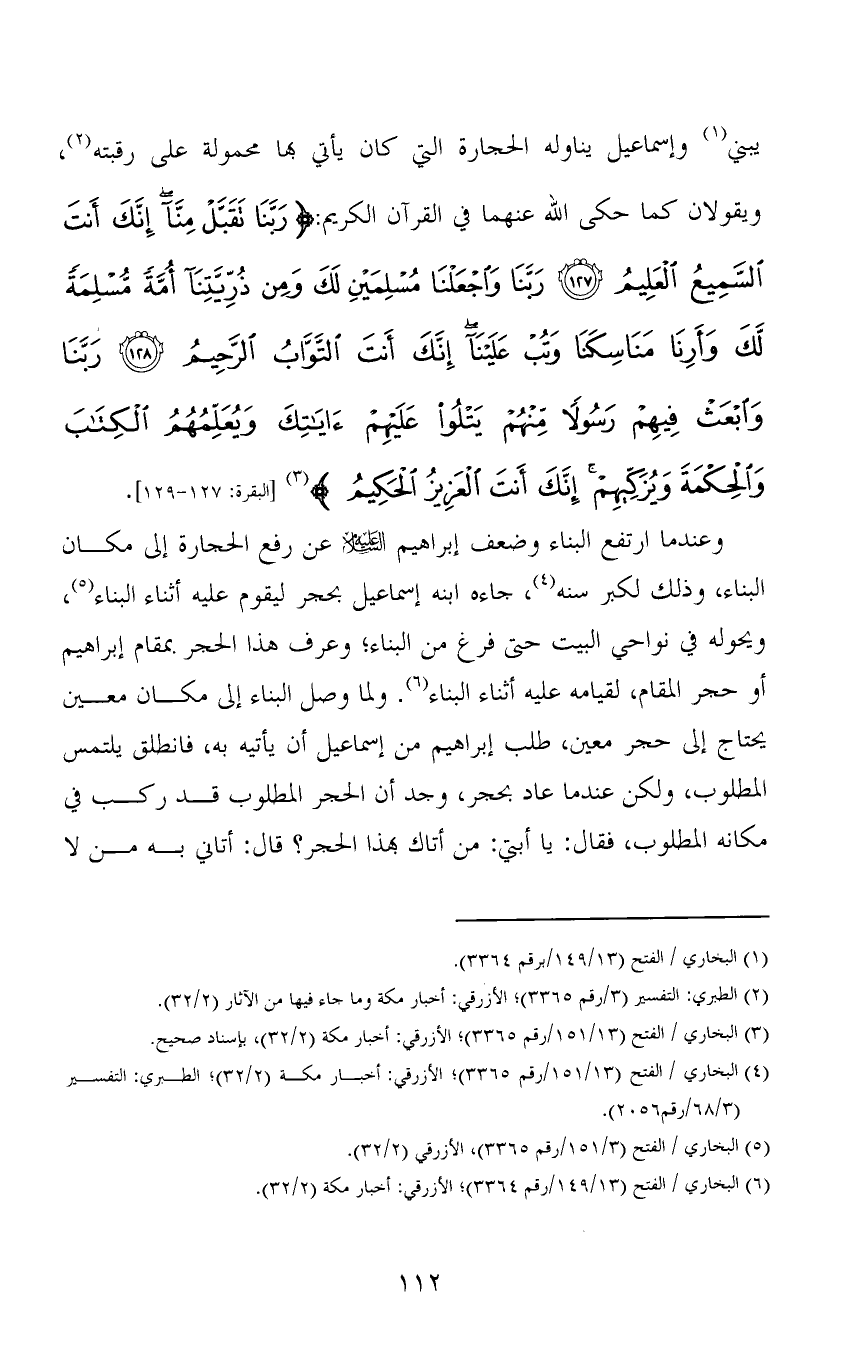 يبني(١) وإسماعيل يناوله الحجارة التي كان يأتي بها محمولة على رقبته(٢)،
ويقولان كما حكى الله عنهما في القرآن الكريم: ﴿ رَبَّنَا تَقَبَّلْ مِنَّآ ۖ إِنَّكَ أَنتَ
ٱلسَّمِيعُ ٱلْعَلِيمُ ۝١٢٧ رَبَّنَا وَٱجْعَلْنَا مُسْلِمَيْنِ لَكَ وَمِن ذُرِّيَّتِنَآ أُمَّةً مُّسْلِمَةً
لَّكَ وَأَرِنَا مَنَاسِكَنَا وَتُبْ عَلَيْنَآ ۖ إِنَّكَ أَنتَ ٱلتَّوَّابُ ٱلرَّحِيمُ ۝١٢٨ رَبَّنَا
وَٱبْعَثْ فِيهِمْ رَسُولًا مِّنْهُمْ يَتْلُوا۟ عَلَيْهِمْ ءَايَـٰتِكَ وَيُعَلِّمُهُمُ ٱلْكِتَـٰبَ
وَٱلْحِكْمَةَ وَيُزَكِّيهِمْ ۚ إِنَّكَ أَنتَ ٱلْعَزِيزُ ٱلْحَكِيمُ ﴾(٣) [البقرة: ١٢٧-١٢٩].
وعندما ارتفع البناء وضعف إبراهيم عليه السلام عن رفع الحجارة إلى مكان
البناء، وذلك لكبر سنه(٤)، جاءه ابنه إسماعيل بحجر ليقوم عليه أثناء البناء(٥)،
ويحوله في نواحي البيت حتى فرغ من البناء؛ وعرف هذا الحجر بمقام إبراهيم
أو حجر المقام، لقيامه عليه أثناء البناء(٦). ولما وصل البناء إلى مكان معين
يحتاج إلى حجر معين، طلب إبراهيم من إسماعيل أن يأتيه به، فانطلق يلتمس
المطلوب، ولكن عندما عاد بحجر، وجد أن الحجر المطلوب قد ركب في
مكانه المطلوب، فقال: يا أبتي: من أتاك بهذا الحجر؟ قال: أتاني به من لا
(١) البخاري / الفتح (١٤٩/١٣/برقم ٣٣٦٤).
(٢) الطبري: التفسير (٣/رقم ٣٣٦٥)؛ الأزرقي: أخبار مكة وما جاء فيها من الآثار (٣٢/٢).
(٣) البخاري / الفتح (١٥١/١٣/رقم ٣٣٦٥)؛ الأزرقي: أخبار مكة (٣٢/٢)، بإسناد صحيح.
(٤) البخاري / الفتح (١٥١/١٣/رقم ٣٣٦٥)؛ الأزرقي: أخبار مكة (٣٢/٢)؛ الطبري: التفسير
(٦٨/٣/رقم٢٠٥٦).
(٥) البخاري / الفتح (١٥١/٣/رقم ٣٣٦٥)، الأزرقي (٣٢/٢).
(٦) البخاري / الفتح (١٤٩/١٣/رقم ٣٣٦٤)؛ الأزرقي: أخبار مكة (٣٢/٢).
١١٢